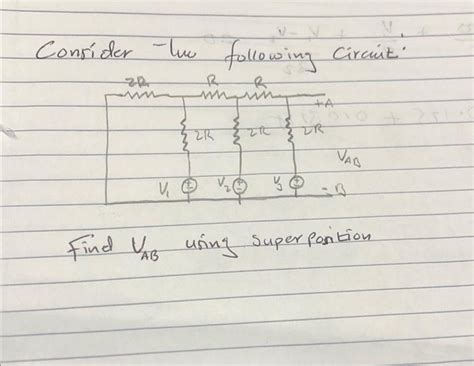 Consider the following Circuit:
2R R R
+A
2R 2R 2R
VAB
V1 V2 V3 -B
Find VAB using superposition